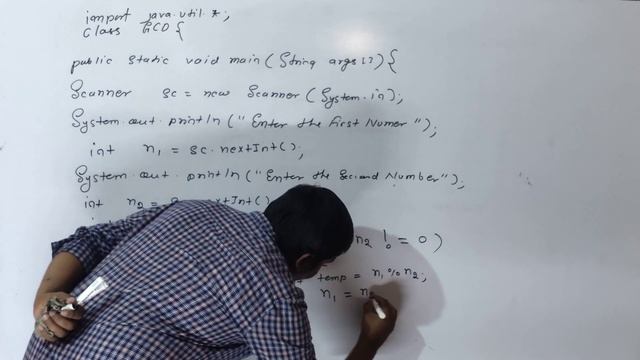 import java.util.*;
class GCD {
public static void main(String args[]) {
Scanner sc = new Scanner(System.in);
System.out.println("Enter the First Numer");
int n1 = sc.nextInt();
System.out.println("Enter the Second Number");
int n2 = xtInt()
n2 != 0)
temp = n1 % n2;
n1 = n2